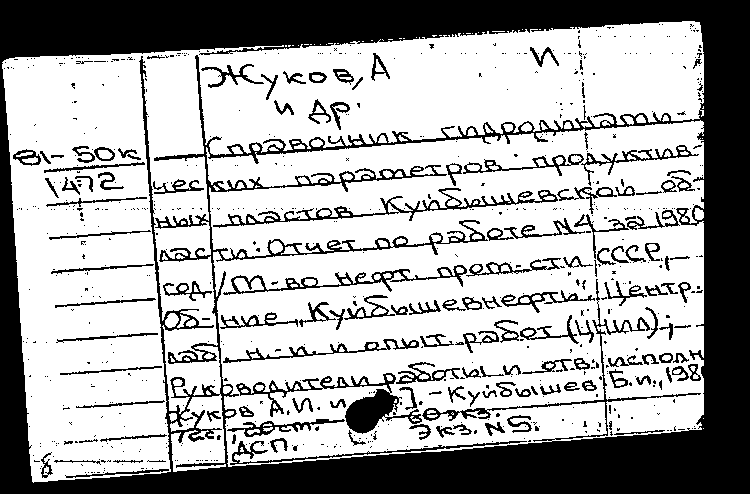 Жуков, А И
и др.
Справочник гидродинами-
81-50к
1472
ческих параметров продуктив-
ных пластов Куйбышевской об-
ласти: Отчет по работе N4 за 1980
год / М-во нефт. пром-сти СССР,
Об-ние „Куйбышевнефть". Центр.
лаб. н.-и. и опыт работ (ЦНИЛ);
Руководители работы и отв. исполн
Жуков А.И. и ]. - Куйбышев: Б.и., 198
60 экз.
ДСП. Экз. N5.
8